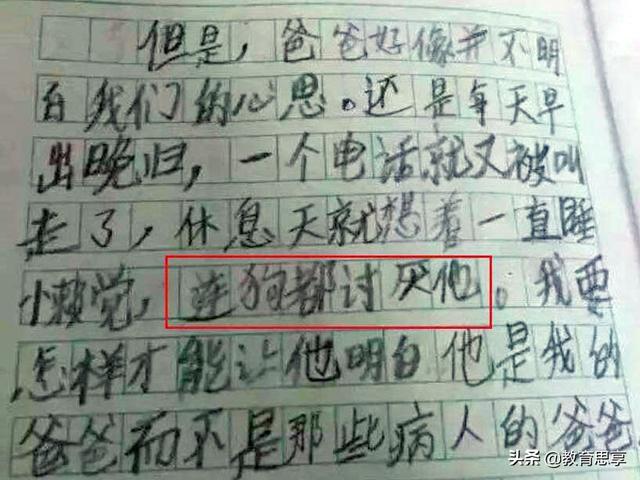 但是，爸爸好像并不明
白我们的心思。还是每天早
出晚归，一个电话就又被叫
走了，休息天就想着一直睡
小懒觉，连狗都讨厌他。我要
怎样才能让他明白他是我的
爸爸而不是那些病人的爸爸
头条@教育思享